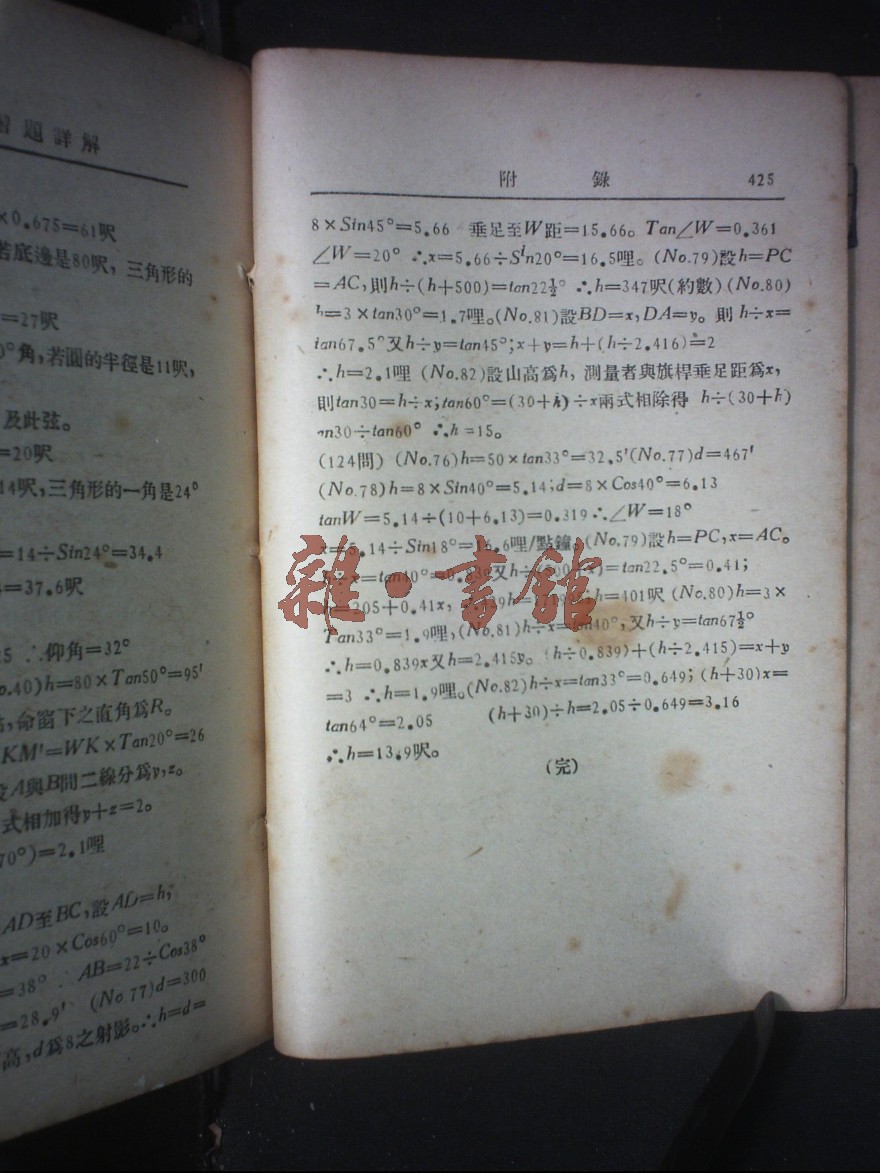 習題詳解
×0.675=61呎
若底邊是80呎，三角形的
=27呎
0°角，若圓的半徑是11呎，
及此弦。
=20呎
14呎，三角形的一角是24°
=14÷Sin24°=34.4
4=37.6呎
25 ∴仰角=32°
o.40)h=80×Tan50°=95'
命窗下之直角爲R。
KM'=WK×Tan20°=26
A與B間二線分爲y,z。
式相加得y+z=2。
70°)=2.1哩
AD至BC，設AD=h，
x=20×Cos60°=10。
=38° AB=22÷Cos38°
=28.9' (No.77)d=300
高，d爲8之射影。∴h=d=
附 錄 425
8×Sin45°=5.66 垂足至W距=15.66。Tan∠W=0.361
∠W=20° ∴x=5.66÷Sin20°=16.5哩。(No.79)設h=PC
=AC，則h÷(h+500)=tan22½° ∴h=347呎(約數)(No.80)
h=3×tan30°=1.7哩。(No.81)設BD=x，DA=y。則h÷x=
tan67.5°又h÷y=tan45°；x+y=h+(h÷2.416)=2
∴h=2.1哩 (No.82)設山高爲h，測量者與旗桿垂足距爲x，
則tan30=h÷x；tan60°=(30+h)÷x兩式相除得 h÷(30+h)
an30÷tan60° ∴h=15。
(124問) (No.76)h=50×tan33°=32.5'(No.77)d=467'
(No.78)h=8×Sin40°=5.14；d=8×Cos40°=6.13
tanW=5.14÷(10+6.13)=0.319∴∠W=18°
x=5.14÷Sin18°=16.6哩/點鐘。(No.79)設h=PC，x=AC。
÷x=tan40°=0.839又h÷( )=tan22.5°=0.41；
=205+0.41x， h=401呎 (No.80)h=3×
Tan33°=1.9哩，(No.81)h÷x=tan40°，又h÷y=tan67½°
∴h=0.839x又h=2.415y。(h÷0.839)+(h÷2.415)=x+y
=3 ∴h=1.9哩。(No.82)h÷x=tan33°=0.649；(h+30)x=
tan64°=2.05 (h+30)÷h=2.05÷0.649=3.16
∴h=13.9呎。
(完)
雜·書館